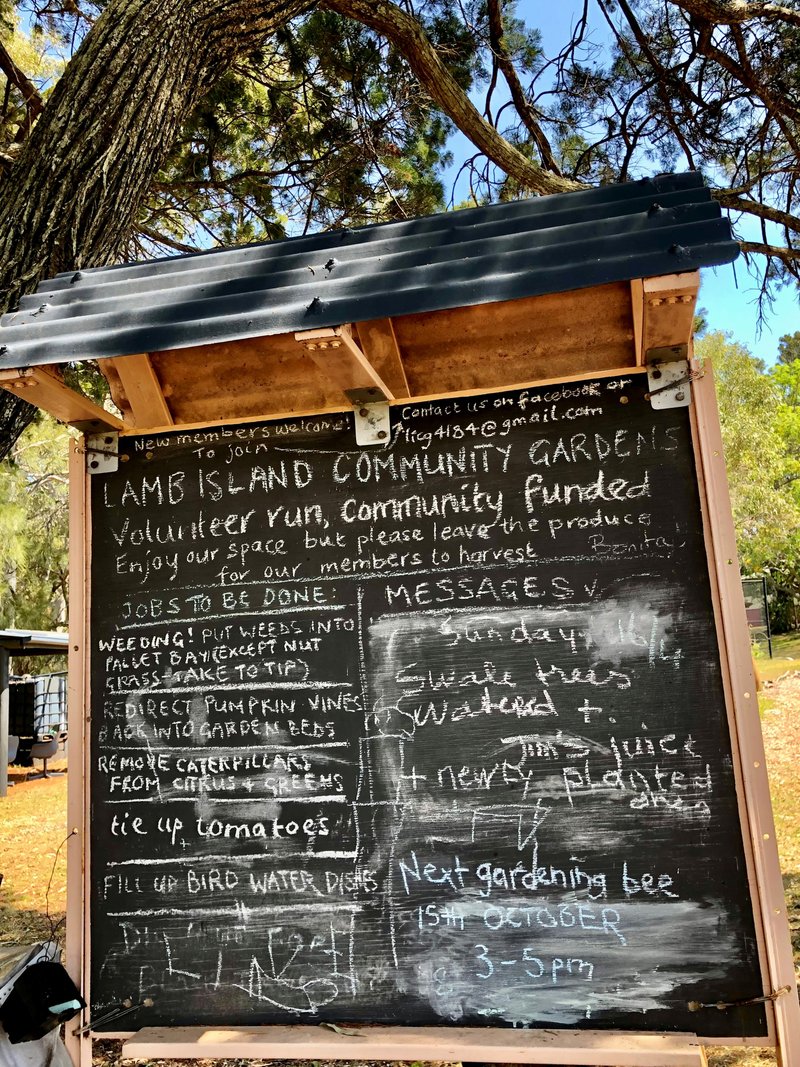 New members welcome!
To join
Contact us on facebook or
licg4184@gmail.com
LAMB ISLAND COMMUNITY GARDENS
Volunteer run, community funded
Enjoy our space but please leave the produce
for our members to harvest Bonita
JOBS TO BE DONE:
WEEDING! PUT WEEDS INTO
PALLET BAY (EXCEPT NUT
GRASS-TAKE TO TIP)
REDIRECT PUMPKIN VINES
BACK INTO GARDEN BEDS
REMOVE CATERPILLARS
FROM CITRUS + GREENS
tie up tomatoes
FILL UP BIRD WATER DISHES
MESSAGES
Sunday 16/4
Swale trees
watered +
Tim's juice
+ newly planted
ones
Next gardening bee
15th OCTOBER
3-5pm